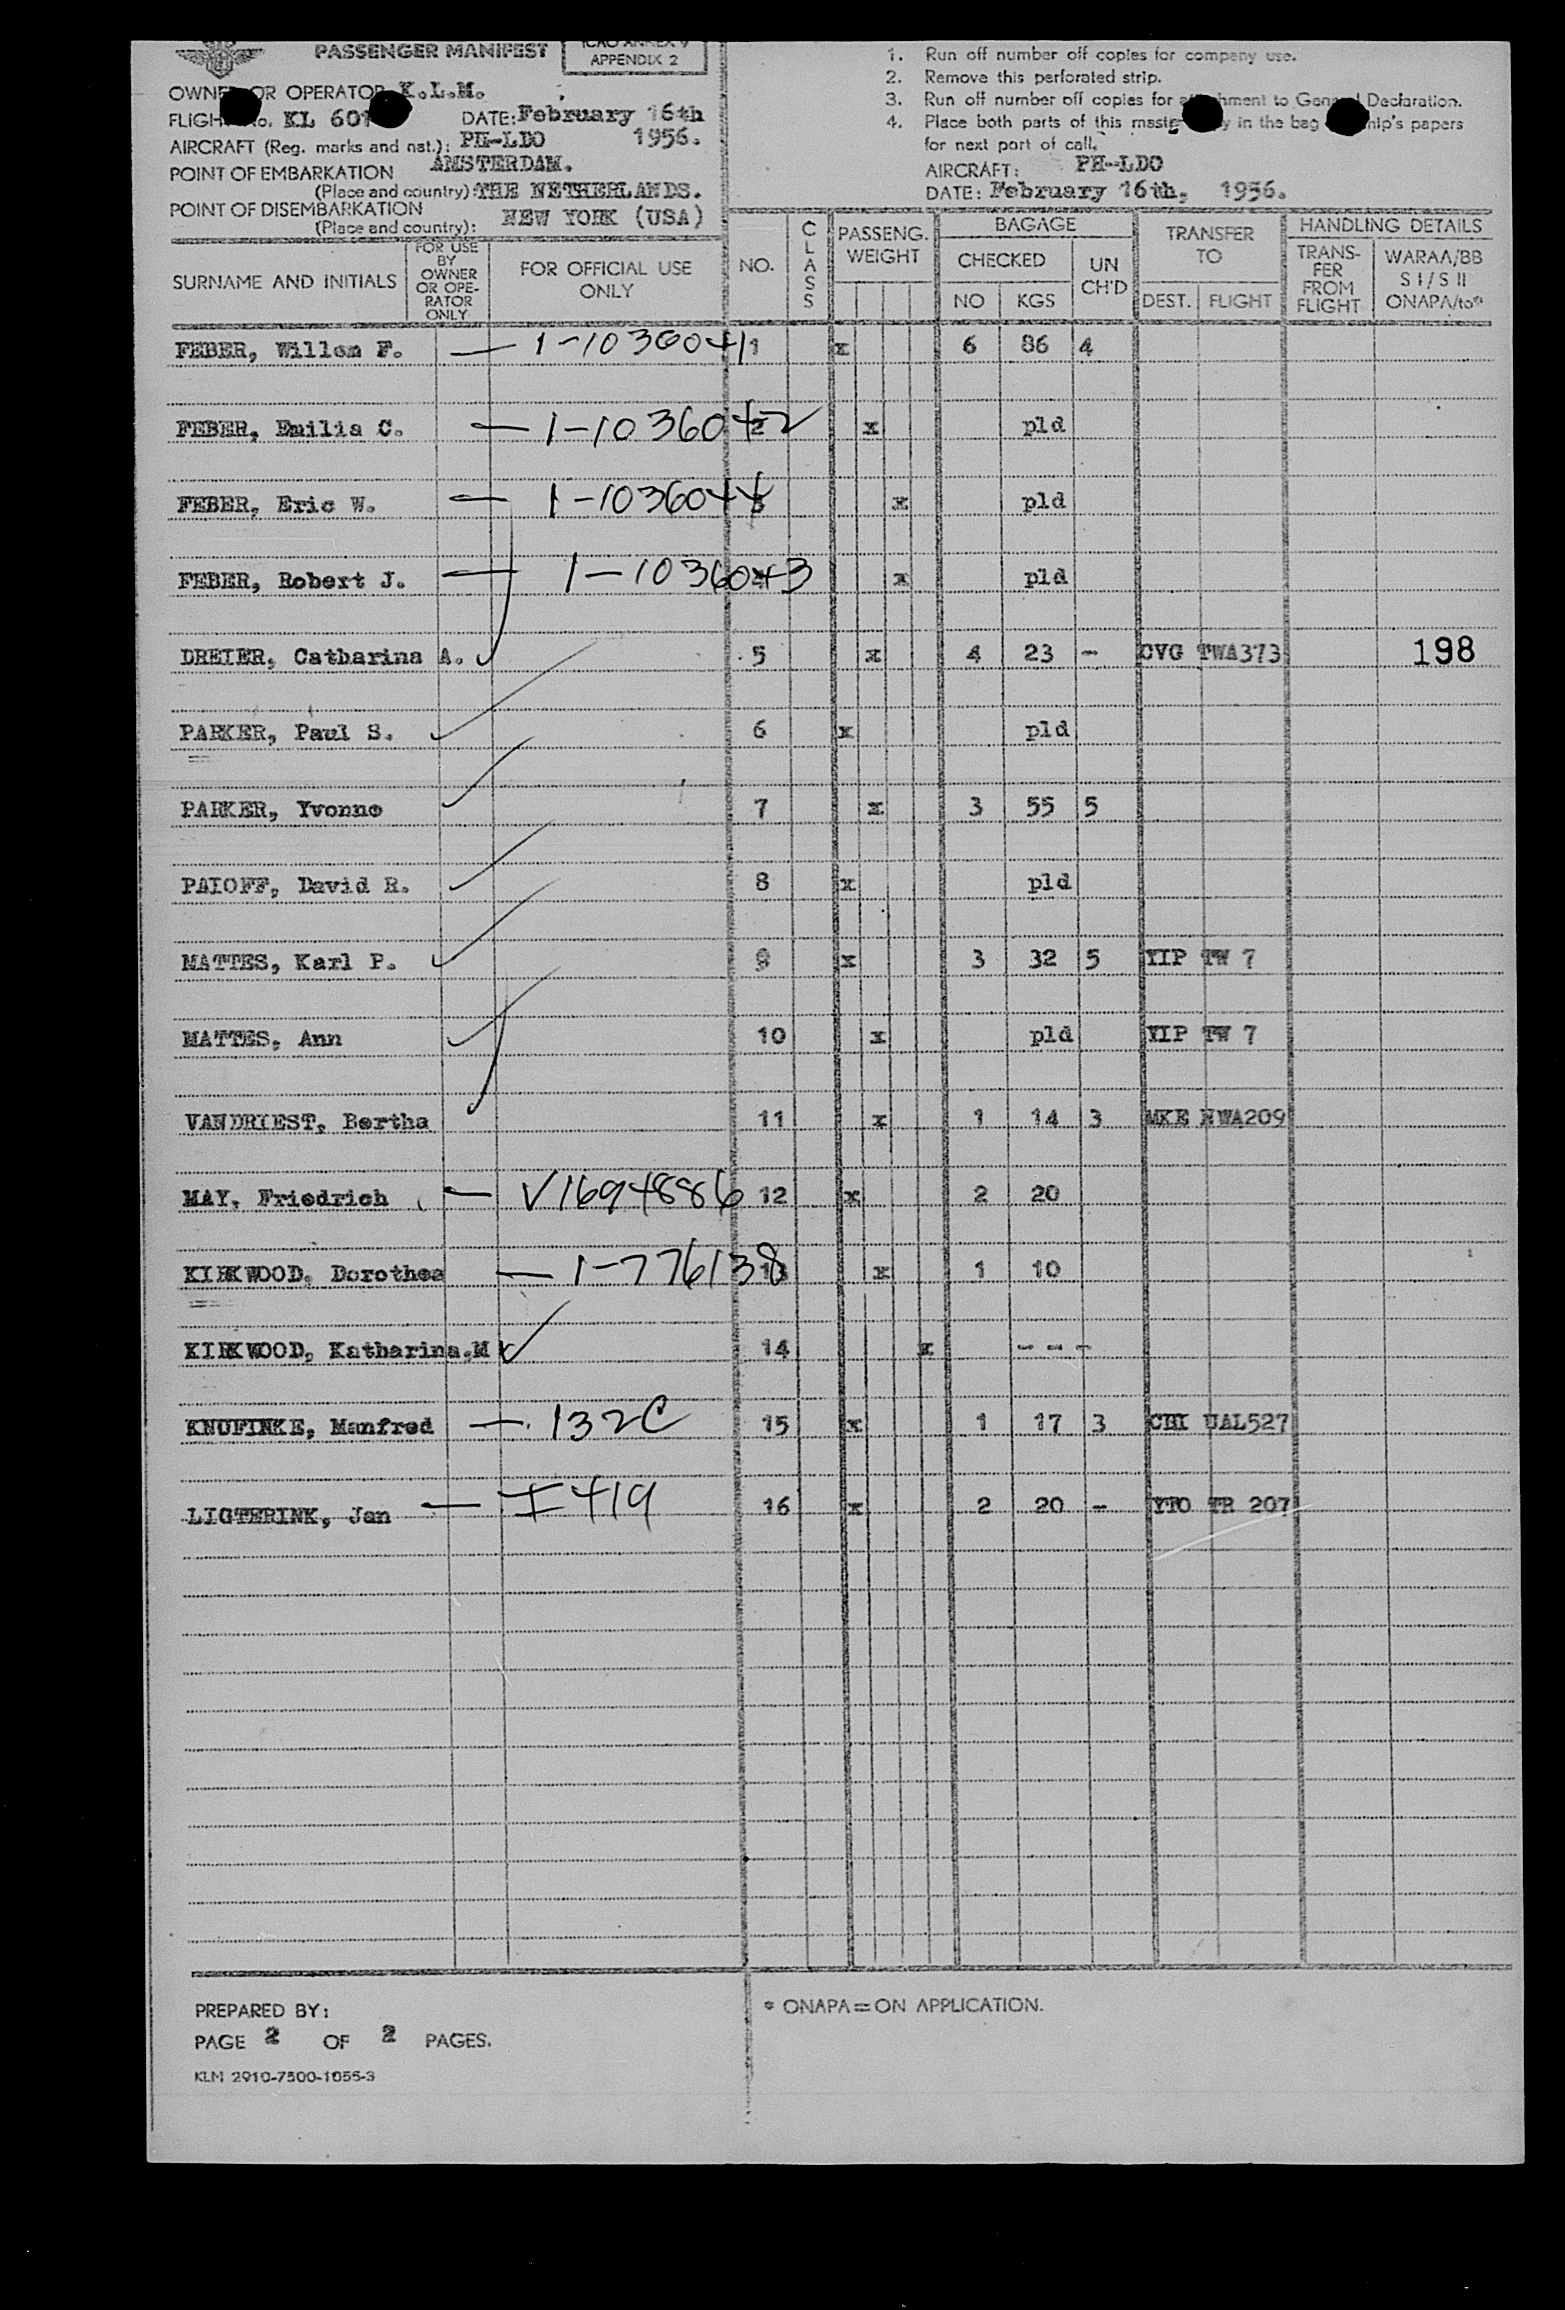 PASSENGER MANIFEST
ICAO ANNEX 9
APPENDIX 2
OWNER OR OPERATOR K.L.M.
FLIGHT No. KL 601 DATE: February 16th
AIRCRAFT (Reg. marks and nat.): PH-LDO 1956.
POINT OF EMBARKATION AMSTERDAM.
(Place and country): THE NETHERLANDS.
POINT OF DISEMBARKATION
(Place and country): NEW YORK (USA)
1. Run off number off copies for company use.
2. Remove this perforated strip.
3. Run off number off copies for attachment to General Declaration.
4. Place both parts of this master in the bag ship's papers
for next port of call.
AIRCRAFT: PH-LDO
DATE: February 16th, 1956.
SURNAME AND INITIALS
FOR USE BY OWNER OR OPE-RATOR ONLY
FOR OFFICIAL USE ONLY
NO.
CLASS
PASSENG. WEIGHT
BAGAGE
CHECKED
NO KGS
UN CH'D
TRANSFER TO
DEST. FLIGHT
HANDLING DETAILS
TRANS-FER FROM FLIGHT
WARAA/BB S I / S II ONAPA/to*
FEBER, Willem F. — 1-1036041 1 x 6 86 4
FEBER, Emilia C. — 1-1036042 2 x pld
FEBER, Eric W. — 1-1036044 3 x pld
FEBER, Robert J. — 1-1036043 4 x pld
DREIER, Catharina A. 5 x 4 23 - CVG TWA373 198
PARKER, Paul S. 6 x pld
PARKER, Yvonne 7 x 3 55 5
PAIOFF, David R. 8 x pld
MATTES, Karl P. 9 x 3 32 5 YIP TW 7
MATTES, Ann 10 x pld YIP TW 7
VANDRIEST, Bertha 11 x 1 14 3 MKE NWA209
MAY, Friedrich — V1694886 12 x 2 20
KIRKWOOD, Dorothea — 1-776138 13 x 1 10
KIRKWOOD, Katharina.M 14 x - - -
KNUFINKE, Manfred — 132C 15 x 1 17 3 CHI UAL527
LIGTERINK, Jan — I 419 16 x 2 20 - YTO TR 207
PREPARED BY:
PAGE 2 OF 2 PAGES.
KLM 2910-7500-1055-3
* ONAPA=ON APPLICATION.